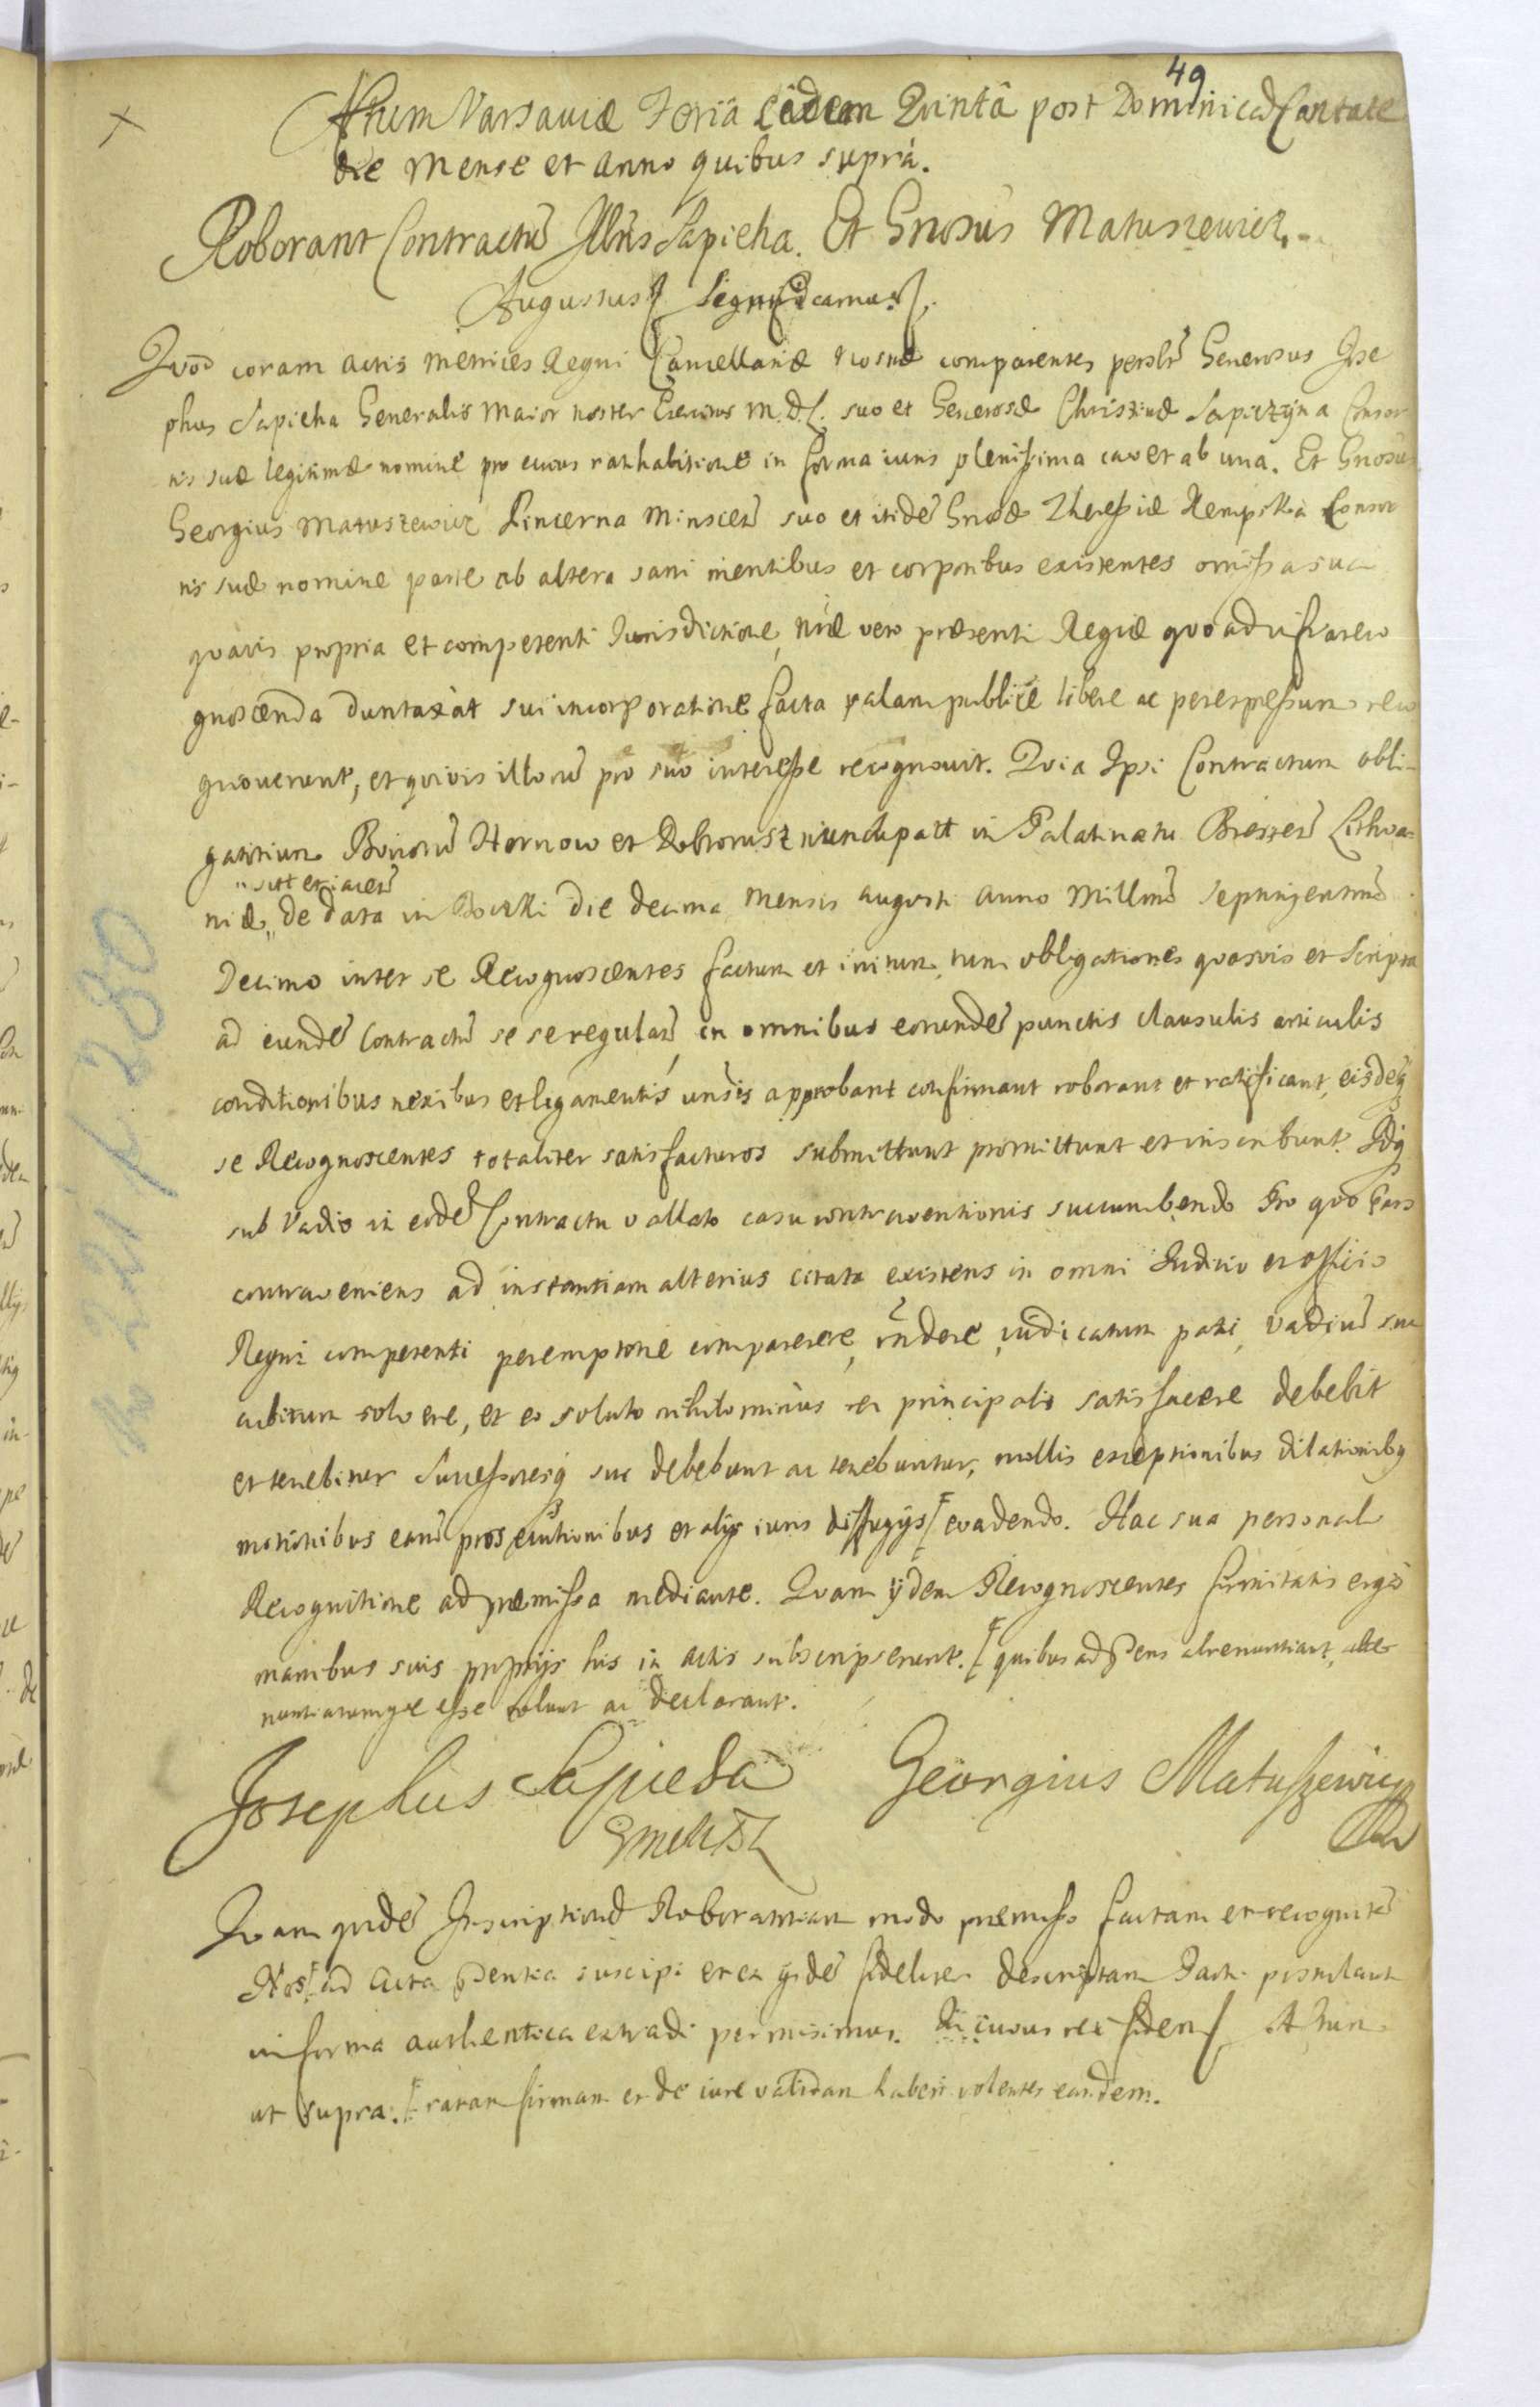 49
Actum Varsaviæ Feriâ eâdem Quintâ post Dominicā Cantate
die Mense et Anno quibus suprà.
Roborant Contractū Illris Sapieha. Et Gnosus Matuszewicz.
Augustus Significamus.
Quod coram Actis Metrices Regni Cancellariæ comparentes Generosus Jose
phus Sapieha Generalis Maior noster Exercitus M.D.L. suo et Generosæ Christinæ Sapiezyna Consor
tis suæ legitimæ nomine pro cuius rathabitione in forma iuris plenissima cavet ab una. Et Gnosus
Georgius Matuszewicz Pincerna Minscen̄ suo et itidē Gnosæ Theressiæ Kempska Consor
tis suæ nomine parte ab altera sani mentibus et corporibus existentes omissa sua
quavis propria et competenti Jurisdictione, nræ vero præsenti Regiæ quo ad infra reco
gnoscenda duntaxàt sui incorporatione facta palam publice libere ac per expressum reco
gnoverunt, et quivis illorū pro suo interesse recognovit. Quia Ipsi Contractum obli-
gatorium Bonorū Hornow et in Palatinatu Bresten̄ Lithva-
sitt et iacen̄
niæ, de data in Bocki die decima mensis augusti Anno Millmō septingentmō
Decimo inter se Recognoscentes factum et initum, tum obligationes quasvis et scripta
ad eundē Contractū se se regulan̄, in omnibus eorundē punctis clausulis articulis
conditionibus nexibus et ligamentis unsis approbant confirmant roborant et ratificant, eisdēq
se Recognoscentes totaliter satisfacturos submittunt promittunt et inscribunt. Idq
sub Vadio in eodē Contractu vallato casu contraventionis succumbendo Pro quo Pars
contraveniens ad instantiam alterius citata existens in omni Iudicio et officio
Regni competenti peremptorie comparere, rñdere, iudicatum pati, vadiū suc
cubitum solvere, et eo soluto nihilominùs rei principali satisfacere debebit
et tenebitur Successoresq sui debebunt ac tenebuntur, nullis exceptionibus dilationibq
motionibus earū prosecutionibus et alijs iuris diffugijs evadendo. Hac sua personali
Recognitione ad præmissa mediante. Quam ijdem Recognoscentes firmitatis ergò
manibus suis proprijs his in actis subscripserunt. quibus ad pñens abrenuntiant, abre
nuntiatumque esse volunt ac declarant.
Josephus Sapieha Georgius Matuszewicz
Quam quidē Inscriptionē Roboratoriam modo præmisso factam et recognitā
Nos ad Acta pñentia suscipi et ex ijsdē fideliter descriptam Parti postulanti
in forma authentica extradi permisimus. In cuius rei fidem. Actum
ut supra. ratam firmam et de iure validam haberi volentes eandem.
N 221 k 280